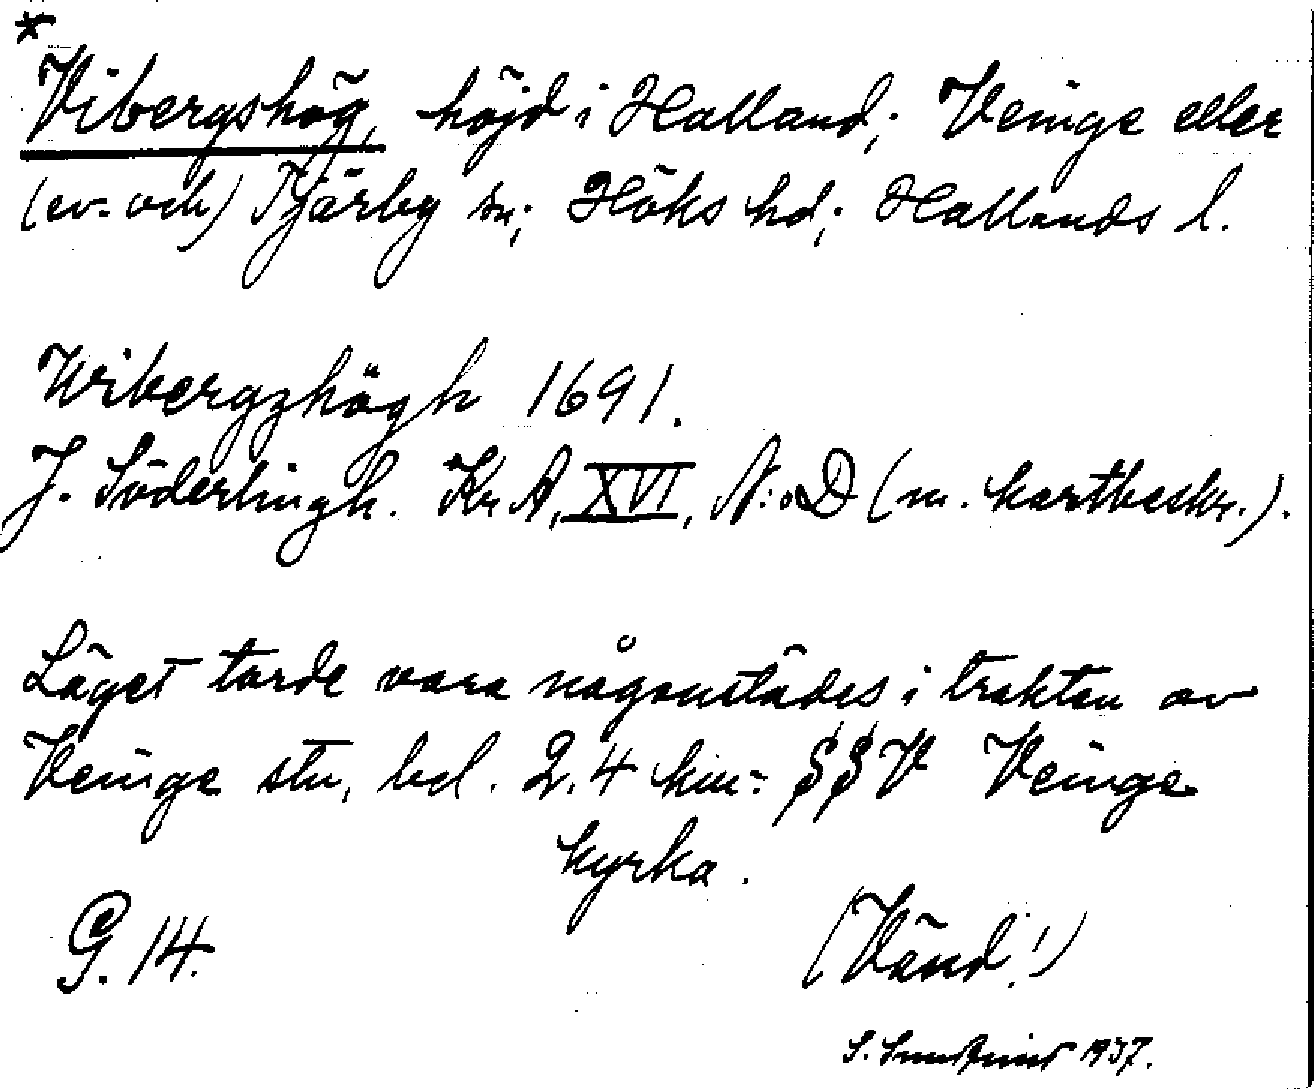 *
Vibergshög, höjd i Halland; Veinge eller
(ev. och) Tjärby sn; Höks hd; Hallands l.
Wibergzhögh 1691.
J. Söderlingh. Kr A, XVI, N:o D (m. kartbeskr.).
Läget torde vara någonstädes i trakten av
Veinge stn, bel. 2.4 km: SSV Veinge
kyrka.
G. 14.
(Vänd!)
S. 1937.